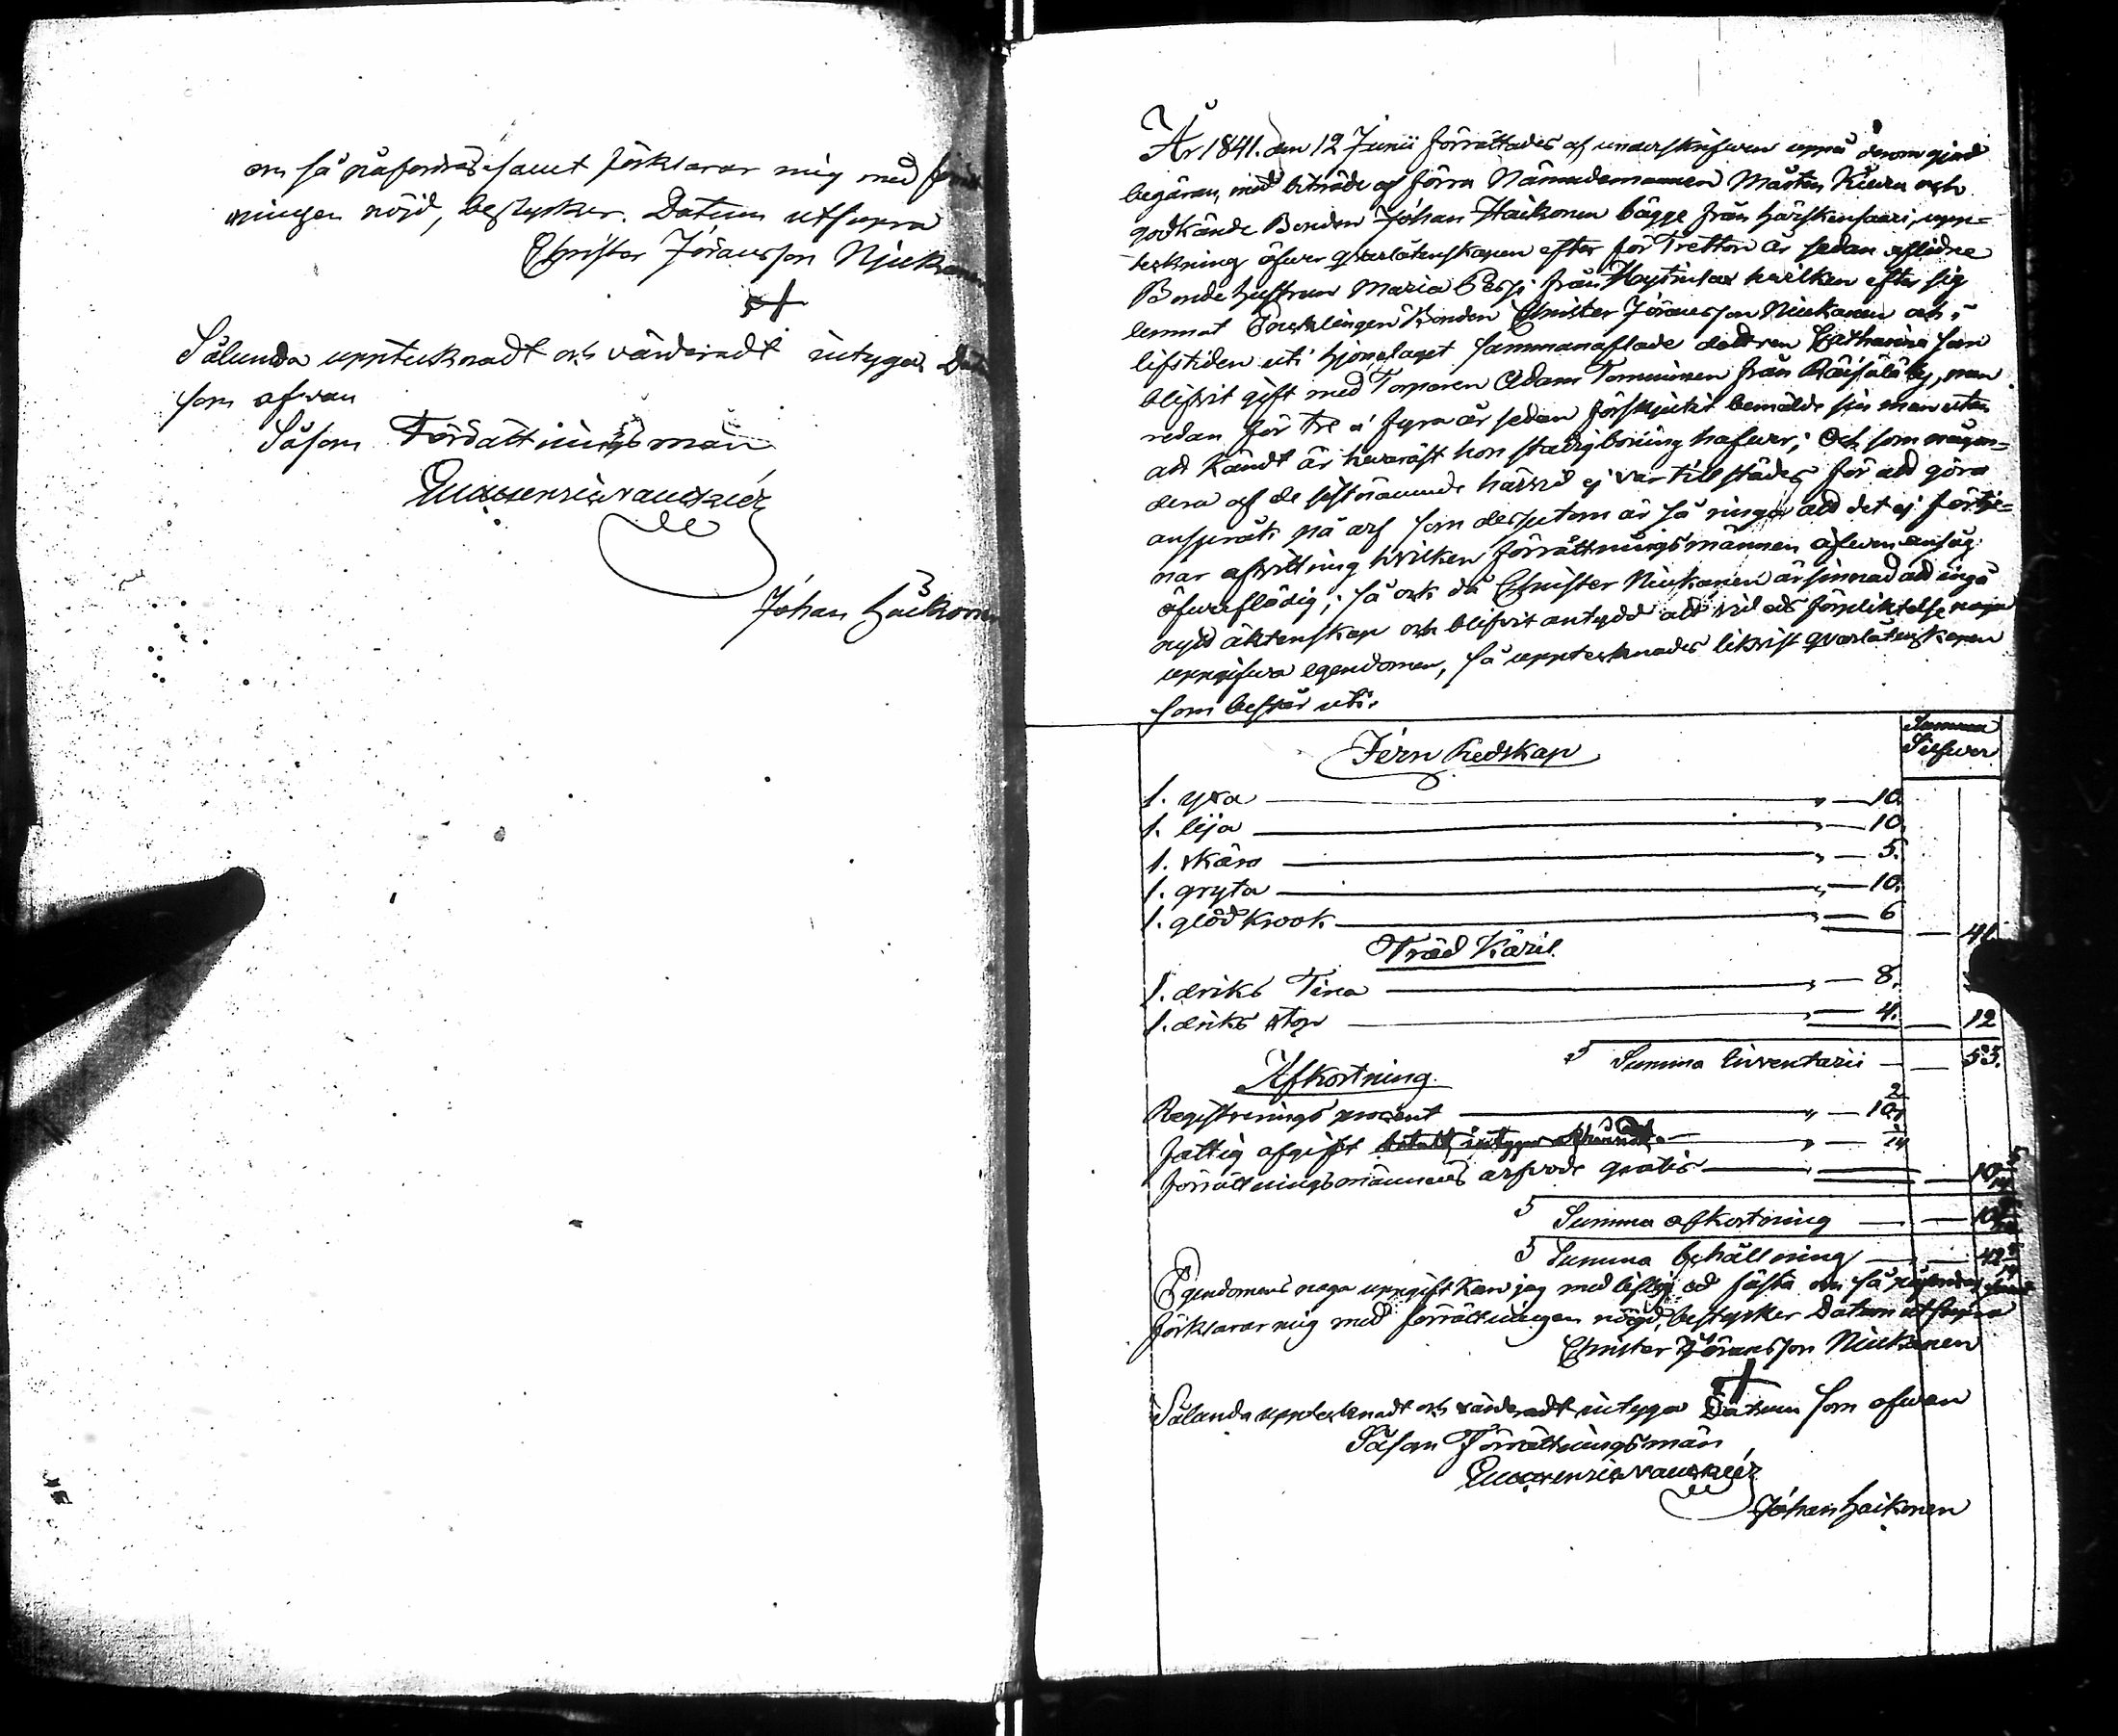 om så påfordras samt förklarar mig med förrätt
ningen nöjd, bestyrker. Datum utsupra
Christer Jöransson Niukanen
Sålunda upptecknadt och värderadt intygar Datum
som ofwan
Såsom Förrättningsmän
Johan Haikonen
År 1841. den 12 Junii förrättades af underskrifwen uppå derom gjord
begäran, med biträde af förra Nämndemannen Mårten Kiuru och
godkände Bonden Johan Haikonen bägge från Härskensaari, upp=
tekning öfwer qvarlåtenskapen efter för Tretton år sedan aflidne
Bonde hustrun Maria Pessi från hwilken efter sig
lemnat Enklingen Bonden Christer Jöransson Niukanen och i
lifstiden uti hjonelaget sammanaflade dottren Catharina som
blifvit gift med Torparen Adam Tomminen från Räisälä by, men
redan för tre à fyra år sedan förskjutit bemälde sin man utan
att kändt är hwaräst hon stadig boning hafwer; Och som någon=
dera af de sistnämnde härvid ej var tillstädes för att göra
anspråk på arf som dessutom är så ringa att det ej förtje=
nar afvittning hvilken förrättningsmännen äfwen ansåg
öfwerflödig; så ock då Christer Niukanen är sinnad att ingå
nytt äktenskap och blifvit antydd att vid eds förpliktelse noga
uppgifwa egendomen, så upptecknades likvist qvarlåtenskapen
som består uti.
Summa
Silfwer
Jern Redskap
1. yxa — " — 10.
1. lija — " — 10.
1. skära — " — 5.
1. gryta — " — 10.
1. glöd krook — " — 6 — 41.
Träd Käril.
1. driks Tina — " — 8.
1. driks stop — " — 4. — 12
S Summa Inventarii — 53.
Afkortning.
Registrerings procent — " — 10
fattig afgift — "
förrättningsmännens arfvode gratis — 10
S Summa afkortning — 10
S Summa behållning — 42
Egendomens noga uppgift kan jag med liflig ed fästa om så påfordras samt
förklarar mig med förrättningen nögd, bestyrker Datum utsupra
Christer Jöransson Niukanen
Sålunda upptecknadt och värderadt intygar Datum som ofwan
Såsom Förrättningsmän
Johan Haikonen